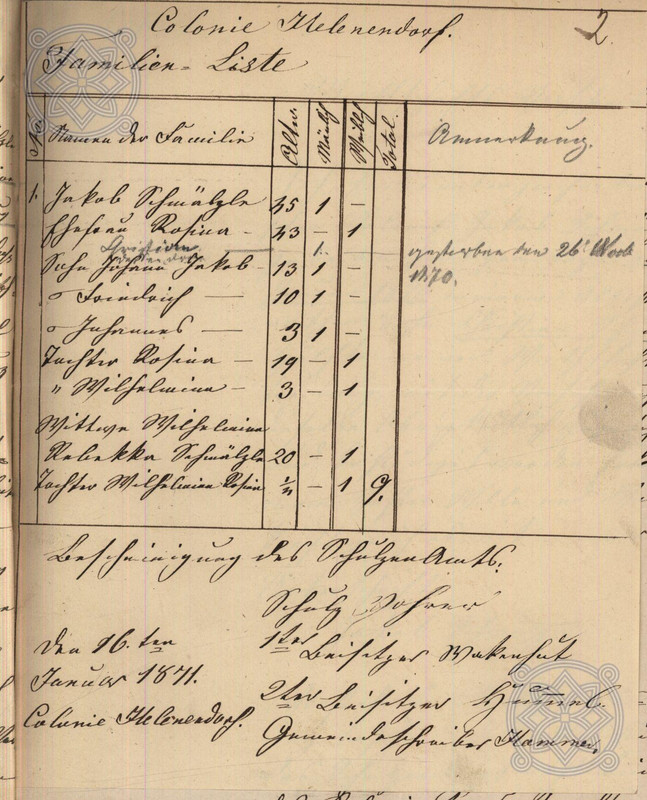 2
Colonie Helenendorf.
Familien-Liste
No. Namen der Familie Alter. Männl. Weibl. Total. Anmerkung.
1. Jakob Schmälzle 45 1 –
Ehefrau Rosina – 43 – 1
Christian 1. gestorben den 26t Novb
Sohn Johann Jakob 13 1 – 1870.
" Friedrich — 10 1 –
" Johannes — 3 1 –
Tochter Rosina – 19 – 1
" Wilhelmina – 3 – 1
Wittwe Wilhelmina
Rebekka Schmälzle 20 – 1
Tochter Wilhelmina Rosina ½ – 1 9.
Bescheinigung des Schulzen Amts:
Schulz Vohrer
Den 16.ten 1ter Beisitzer Wakenhut
Januar 1871. 2ter Beisitzer Hummel
Colonie Helenendorf. Gemeindeschreiber Hammer.